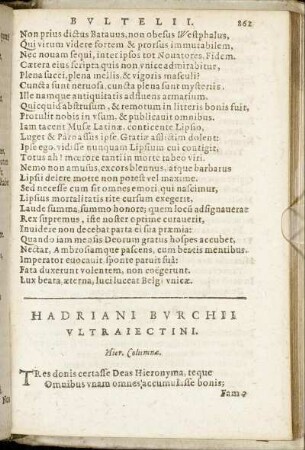 BVLTELII. 862
Non prius dictus Batauus, non obesus Westphalus,
Qui virum videre fortem & prorsus immutabilem,
Nec nouam sequi, interceps tot Nouatores, Fidem.
Cætera eius scripta quis non vnicè admirabitur,
Plena succi, plena mellis, & vigoris masculi?
Cuncta sunt neruosa, cuncta plena sunt mysteriis.
Ille namque antiquitatis adstuens armarium,
Quicquid abstrusum, & remotum in litteris bonis fuit,
Protulit nobis in vsum, & publicauit omnibus.
Iam tacent Musæ Latinæ, conticente Lipsio,
Luget & Parnassus ipse, Gratiæ assistim dolent:
Ipse ego, vidisse nunquam Lipsium cui contigit,
Totus ah! mœrore tanti in morte tabeo viri.
Nemo non amusus, excors bleunus, atque barbarus
Lipsi delere morte non potest vel maxime.
Sed necesse cum sit omnes emori, qui nascimur,
Lipsius mortalitatis rite cursum exegerit,
Laude summa, summo honore; quem locũ adsignauerat
Rex supremus, iste noster optime curauerit,
Inuidere non decebat parta ei sua præmia:
Quando iam mensis Deorum gratus hospes accubet,
Nectar, Ambrosiamque pascens, cum beatis mentibus.
Imperator euocauit, sponte paruit suâ:
Fata duxerunt volentem, non coëgerunt.
Lux beata, æterna, luci luceat Belgî vnicæ.
HADRIANI BVRCHII
VLTRAIECTINI.
Hier. Columnæ.
TRes donis certasse Deas Hieronyma, teque
Omnibus vnam omnes, accumulisse bonis;
Famę